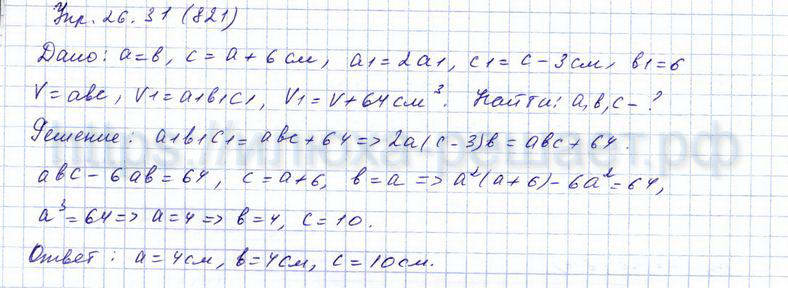 Упр. 26.31 (821)
Дано: a=в, c=a+6 см, a1=2a1, c1=c-3см, в1=в
V=aвc, V1=a1в1c1, V1=V+64 см³. Найти: a,в,c-?
Решение: a1в1c1=aвc+64=>2a(c-3)в=aвc+64.
aвc-6aв=64, c=a+6, в=a=>a²(a+6)-6a²=64,
a³=64=>a=4=>в=4, c=10.
Ответ: a=4см, в=4см, c=10см.